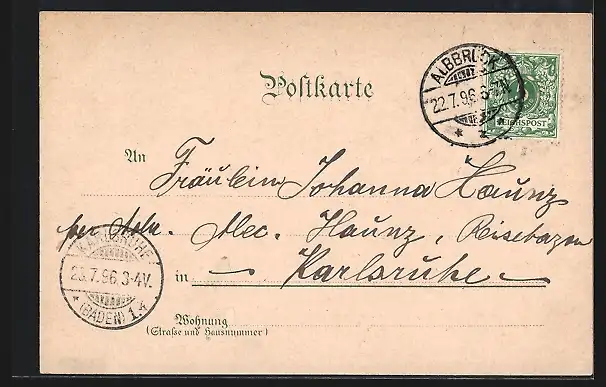 Postkarte
ALBBRUCK
22.7.96.
REICHSPOST
An
Fräulein Johanna Haunz
per Adr. Alec. Haunz, Reisebazar
in — Karlsruhe —
KARLSRUHE
23.7.96.3-4V.
* (BADEN) 1.
Wohnung
(Straße und Hausnummer)